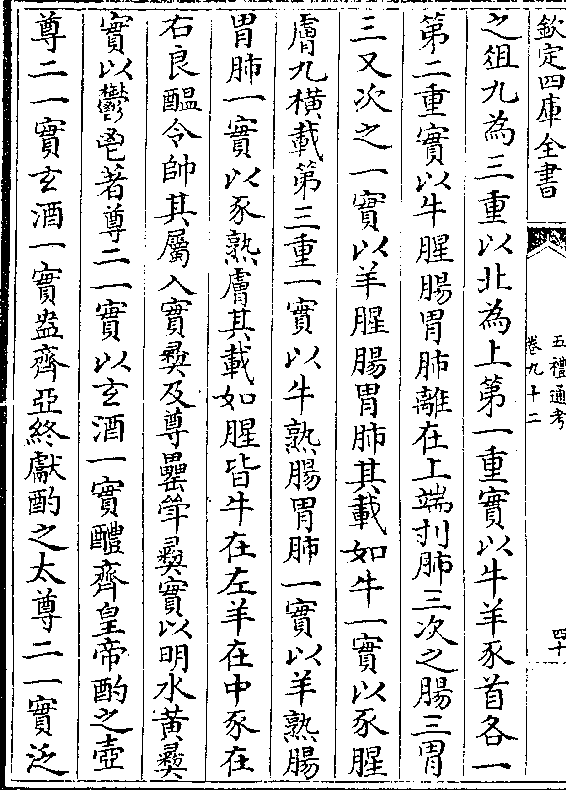 欽定四庫全書
五禮通考
卷九十二
四十
之俎九為三重以北為上第一重實以牛羊豕首各一
第二重實以牛腥腸胃肺離在上端刌肺三次之腸三胃
三又次之一實以羊腥腸胃肺其載如牛一實以豕腥
膚九橫載第三重一實以牛熟腸胃肺一實以羊熟腸
胃肺一實以豕熟膚其載如腥皆牛在左羊在中豕在
右良醖令帥其屬入實彝及尊罍斝彛實以明水黃彛
實以鬱鬯著尊二一實以玄酒一實醴齊皇帝酌之壺
尊二一實玄酒一實盎齊亞終獻酌之太尊二一實泛